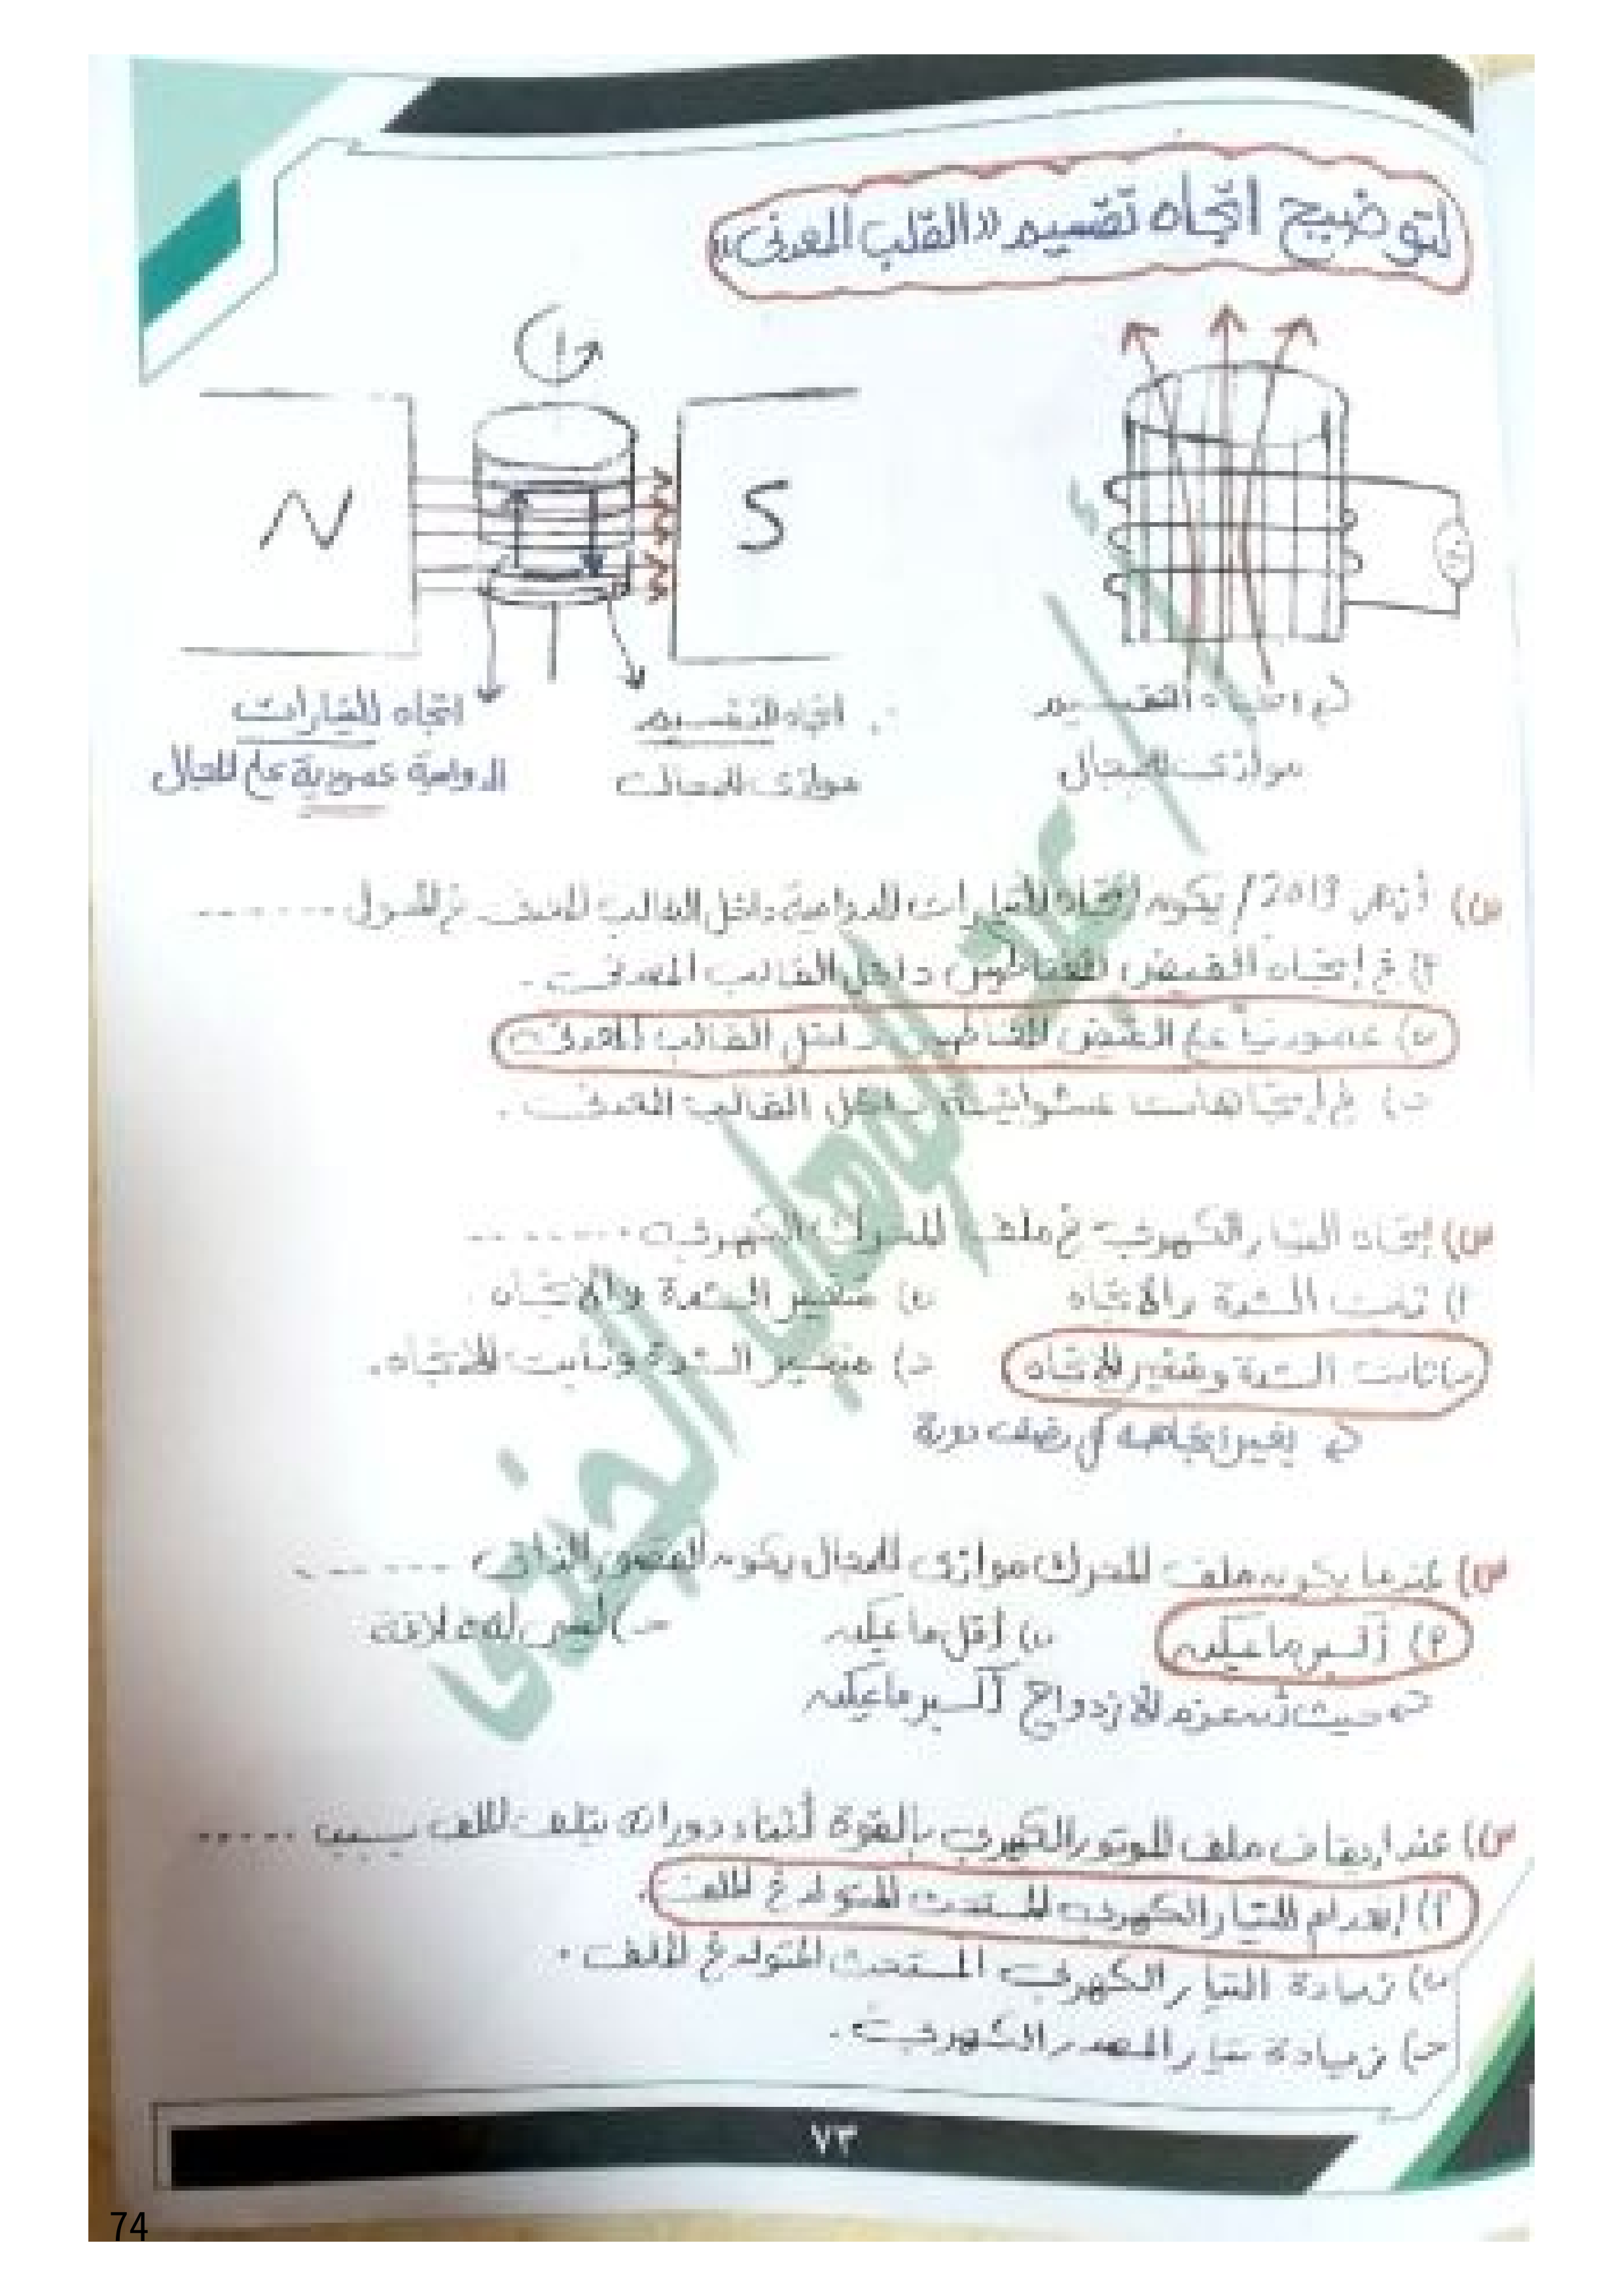 لتوضيح اتجاه تقسيم «القلب المعدنى»
N
S
اتجاه التقسيم
موازى للمجال
اتجاه التقسيم
موازى للمجال
اتجاه التيارات
الدوامية عمودية على المجال
س) أزهر 2019 / يكون اتجاه التيارات الدوامية داخل القالب المعدنى فى المحول ------
أ) فى إتجاه الفيض المغناطيسى داخل القالب المعدنى.
ب) عمودياً على الفيض المغناطيسى داخل القالب المعدنى
ج) فى إتجاهات عشوائية داخل القالب المعدنى.
س) إتجاه التيار الكهربى فى ملف المحرك الكهربى ------
أ) ثابت الشدة والاتجاه
ب) متغير الشدة والاتجاه.
ج) ثابت الشدة ومتغير الاتجاه
د) متغير الشدة وثابت الاتجاه.
يغير إتجاهه كل نصف دورة
س) عندما يكون ملف المحرك موازى للمجال يكون القصور الذاتى ------
أ) أكبر ما يمكن
ب) أقل ما يمكن
ج) ليس له علاقة
حيث أن عزم الازدواج أكبر ما يمكن
س) عند ايقاف ملف الموتور الكهربى بالقوة أثناء دورانه يتلف الملف بسبب -----
أ) إنعدام التيار الكهربى المستحث المتولد فى الملف.
ب) زيادة التيار الكهربى المستحث المتولد فى الملف.
ج) زيادة تيار المصدر الكهربى.
عبدالوهاب الجندى
٧٣
74